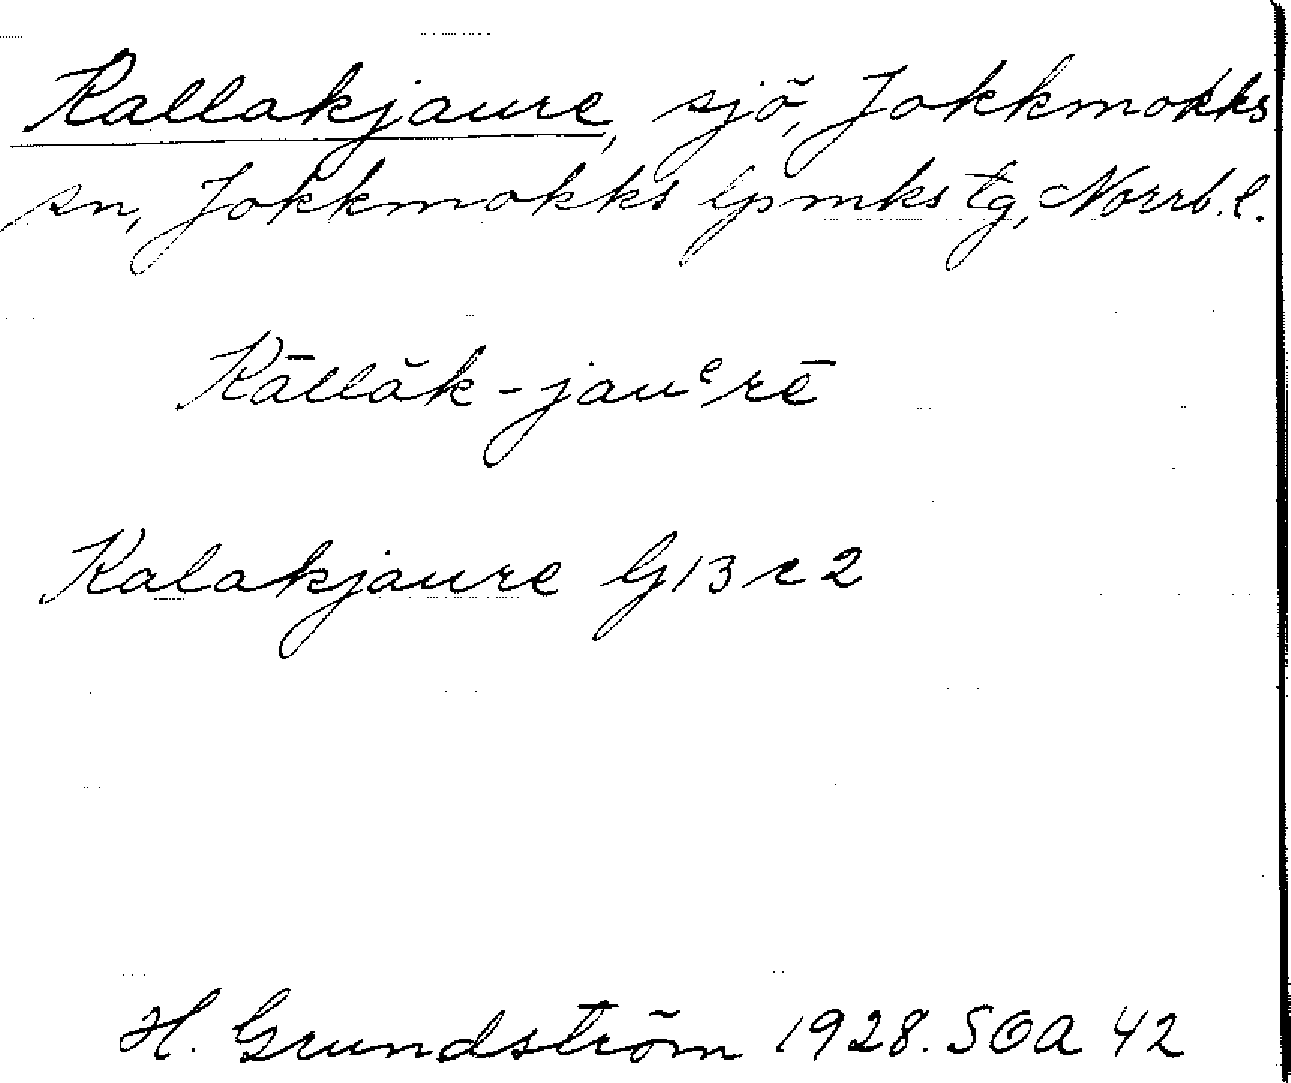 Kallakjaure, sjö, Jokkmokks
sn, Jokkmokks lpmks tg, Norrb. l.
Kāllăk-jauᵉrē
Kalakjaure G13 c 2
H. Grundström 1928. SOA 42